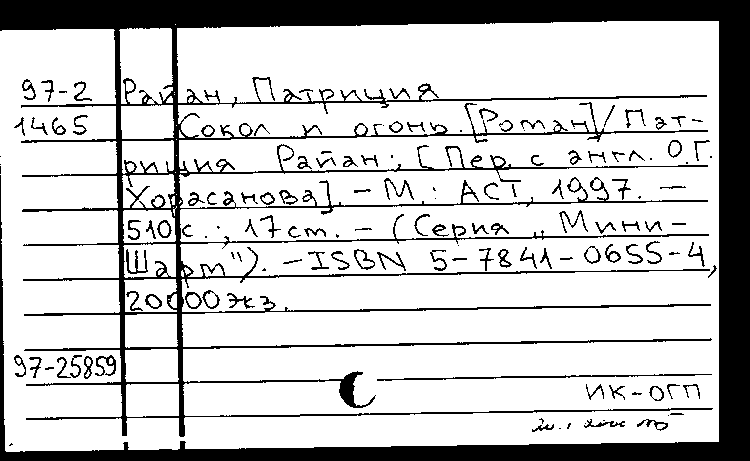 97-2 Райан, Патриция
1465 Сокол и огонь. [Роман] / Пат-
риция Райан; [Пер. с англ. О.Г.
Хорасанова]. - М.: АСТ, 1997. -
510 с.; 17 cm. - (Серия „Мини-
Шарм"). - ISBN 5-7841-0655-4,
20000 экз.
97-25859
ИК-ОГП